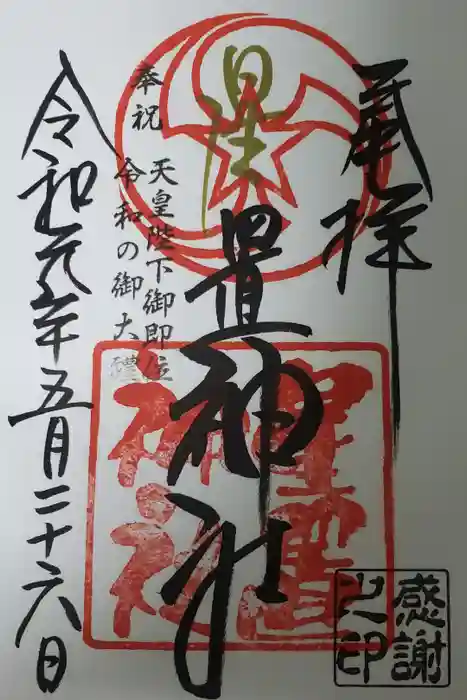 奉拝
星置神社
星置
神社
天皇陛下御即位
奉祝
令和の御大禮
令和元年五月二十六日
感謝
之印